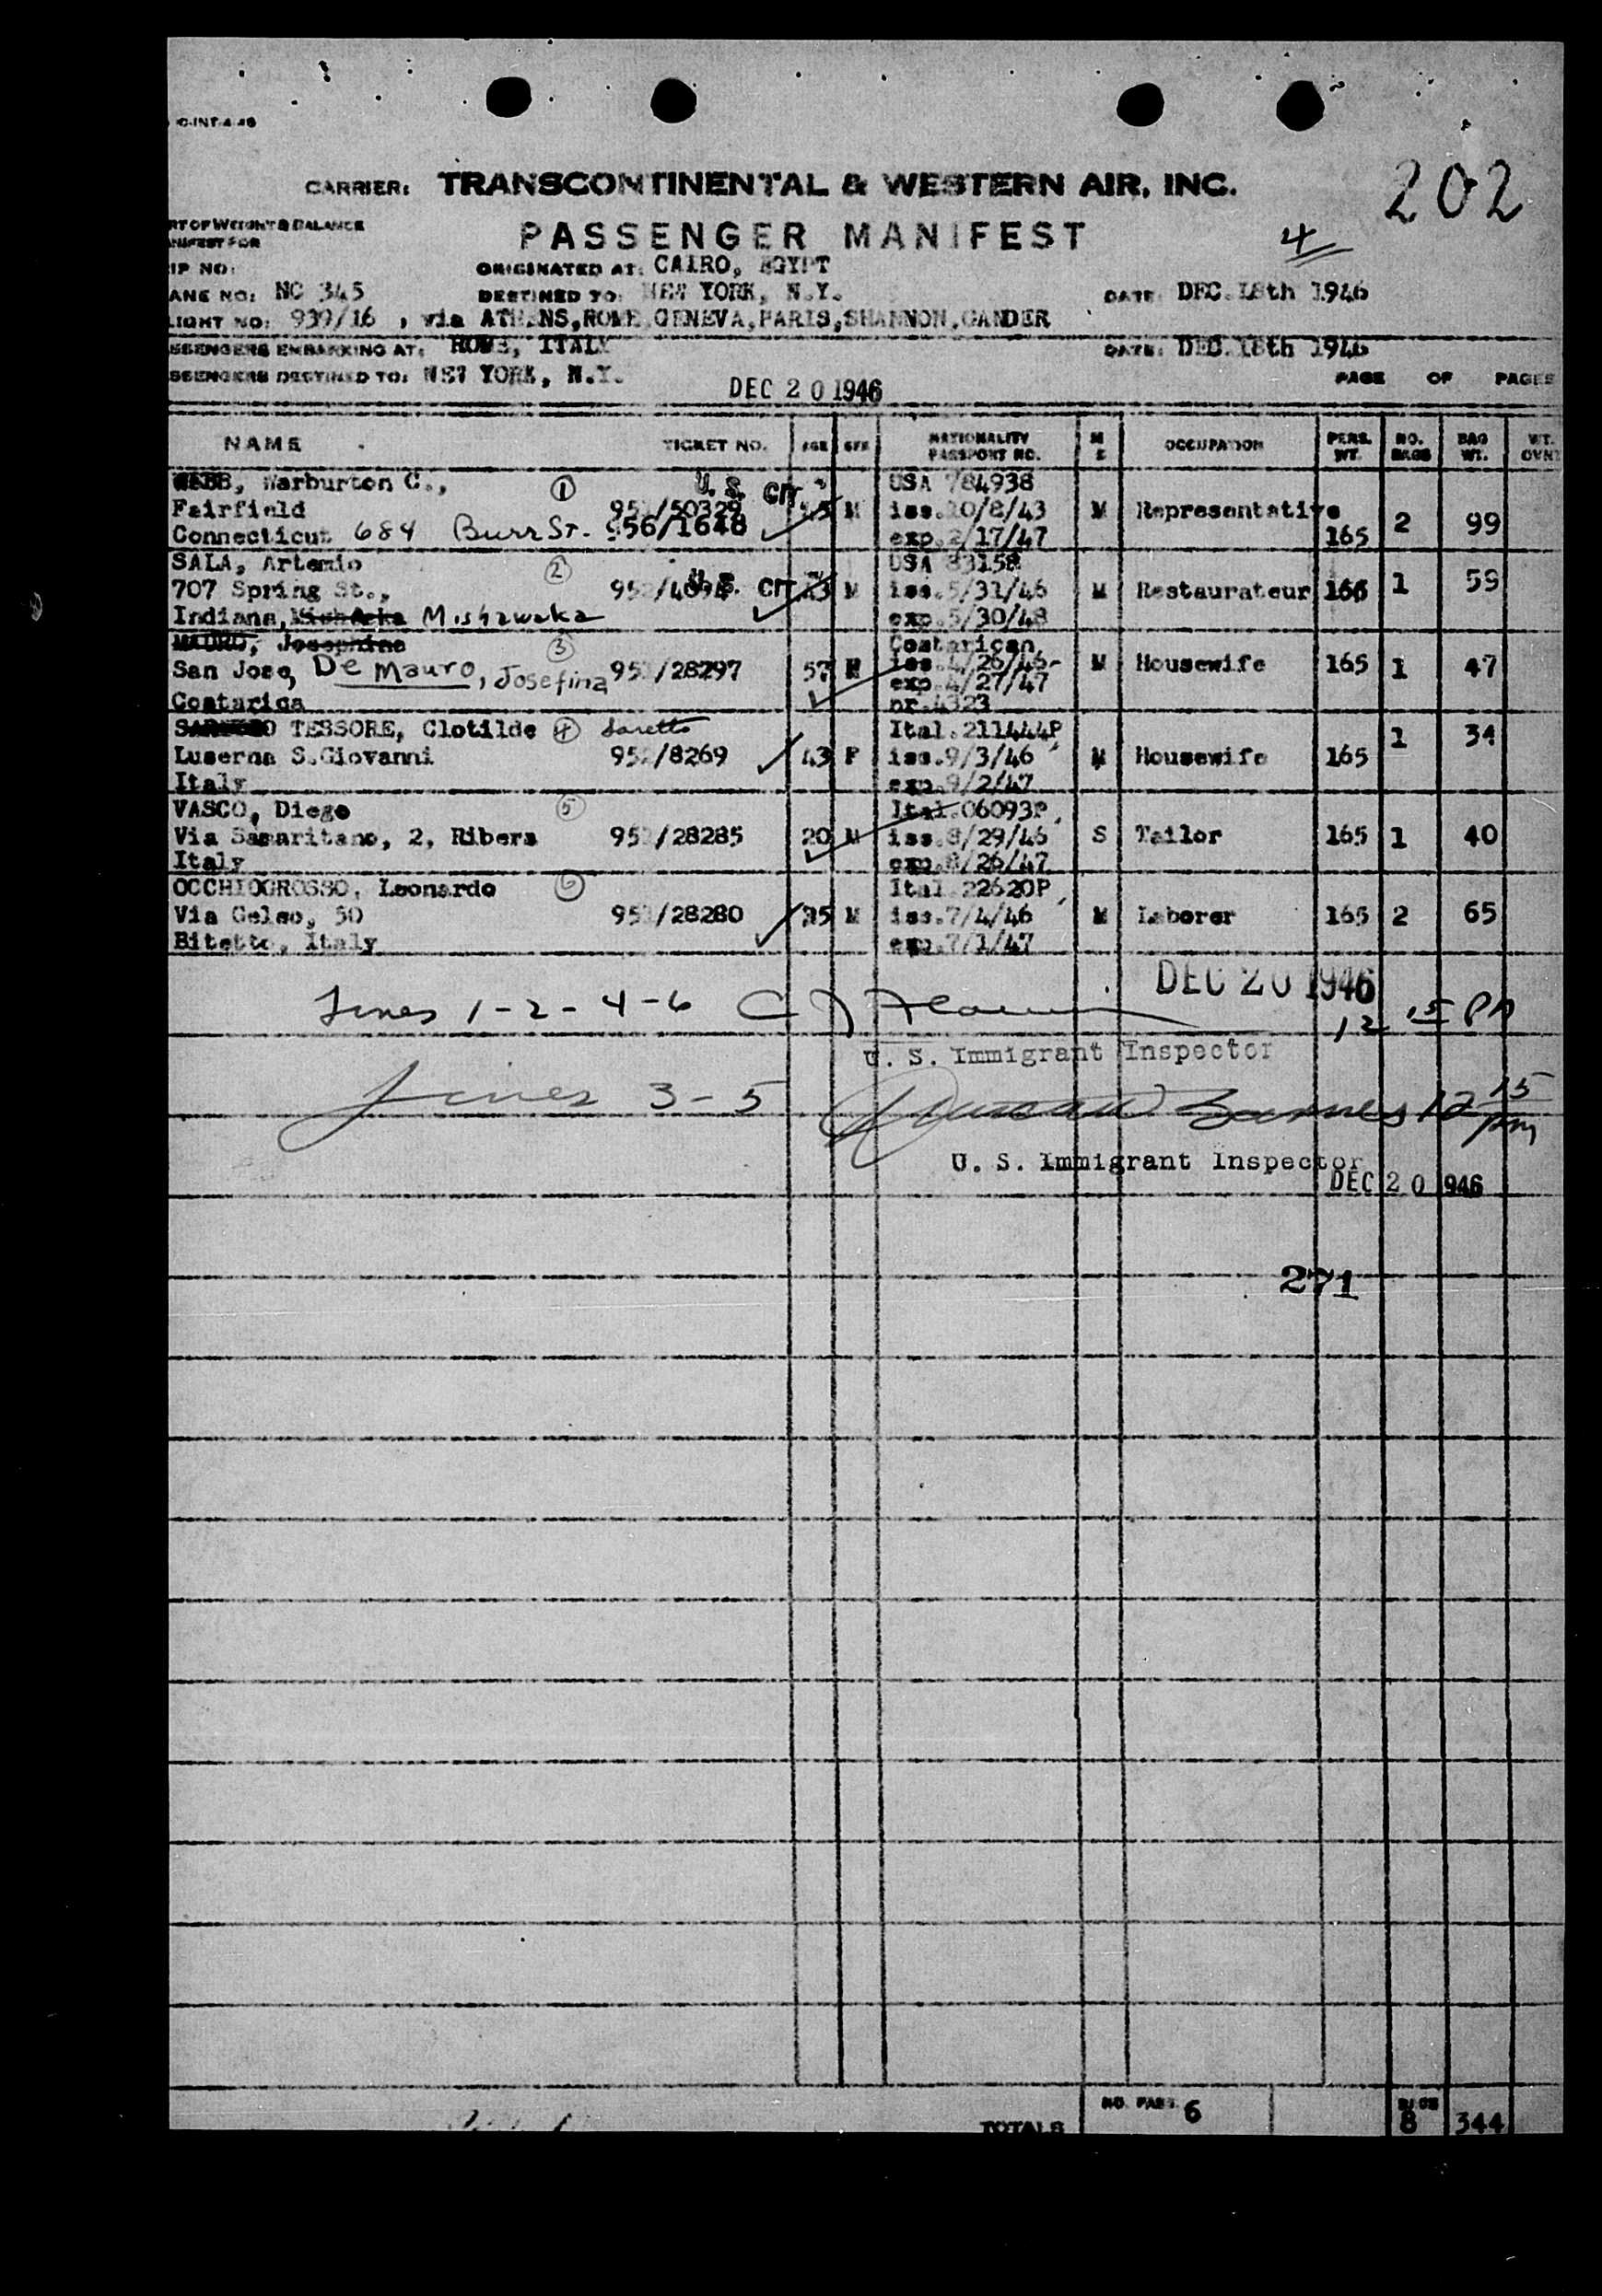 C-INT-4-46
202
CARRIER: TRANSCONTINENTAL & WESTERN AIR, INC.
RT OF WEIGHT & BALANCE
ANIFEST FOR
PASSENGER MANIFEST
4
IP NO:
ORIGINATED AT: CAIRO, EGYPT
ANE NO: NC 345 DESTINED TO: NEW YORK, N.Y. DATE: DEC. 18th 1946
LIGHT NO: 939/16 , via ATHENS, ROME, GENEVA, PARIS, SHANNON, GANDER
SSENGERS EMBARKING AT: ROME, ITALY DATE: DEC. 18th 1946
SSENGERS DESTINED TO: NEW YORK, N.Y. PAGE OF PAGES
DEC 20 1946
NAME TICKET NO. AGE SEX NATIONALITY PASSPORT NO. M S OCCUPATION PERS. WT. NO. BAGS BAG WT. WT. OVN
WEBB, Warburton C., 1 U.S. CIT USA 784938
Fairfield /50329 M iss.10/8/43 M Representative
Connecticut 684 Burr St. 956/1648 exp.2/17/47 165 2 99
SALA, Artemio 2 USA 83158
707 Spring St., U.S. CIT M iss.5/31/46 M Restaurateur 165 1 59
Indiana, Mishawaka exp.5/30/48
MAURO, Josephine 3 Costarican
San Jose, De Mauro, Josefina /28297 57 iss.4/26/46- M Housewife 165 1 47
exp.4/27/47
Costarica nr.4323
TESSORE, Clotilde 4 Saretto Ital.211444P
Luserna S.Giovanni /8269 43 F iss.9/3/46 M Housewife 165 1 34
Italy exp.9/2/47
VASCO, Diego 5 Ital.06093P
Via Samaritano, 2, Ribera /28285 20 M iss.8/29/46 S Tailor 165 1 40
Italy exp.8/26/47
OCCHIOGROSSO, Leonardo 6 Ital.22620P
Via Gelso, 50 /28280 35 M iss.7/4/46 M Laborer 165 2 65
Bitetto, Italy exp.7/1/47
DEC 20 1946
Lines 1-2-4-6 12 15 PM
U. S. Immigrant Inspector
Lines 3-5 12 15 pm
U. S. Immigrant Inspector
DEC 20 1946
271
TOTALS NO. PASS. 6 BAGS 8 344